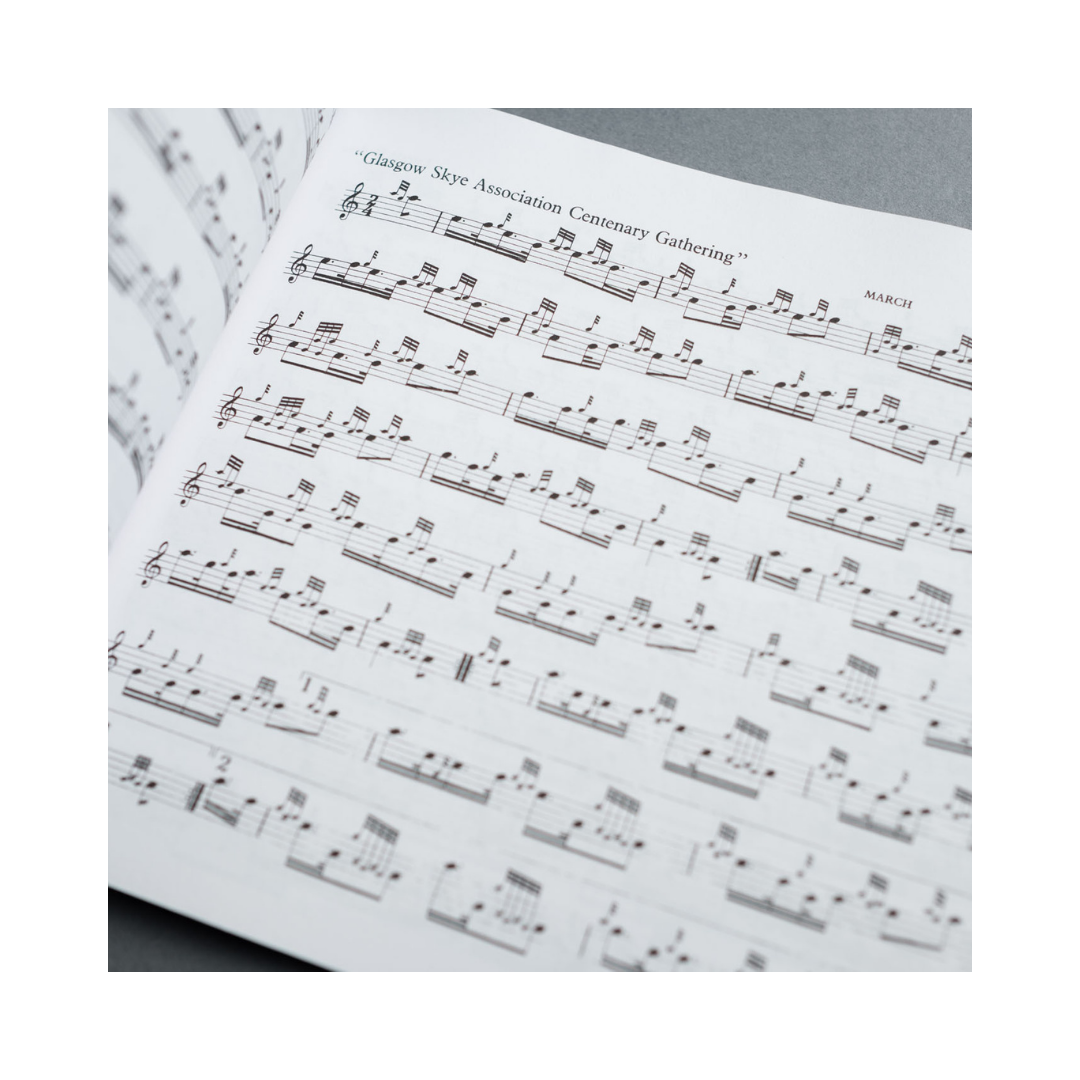 “Glasgow Skye Association Centenary Gathering”
MARCH
2
4
1
2